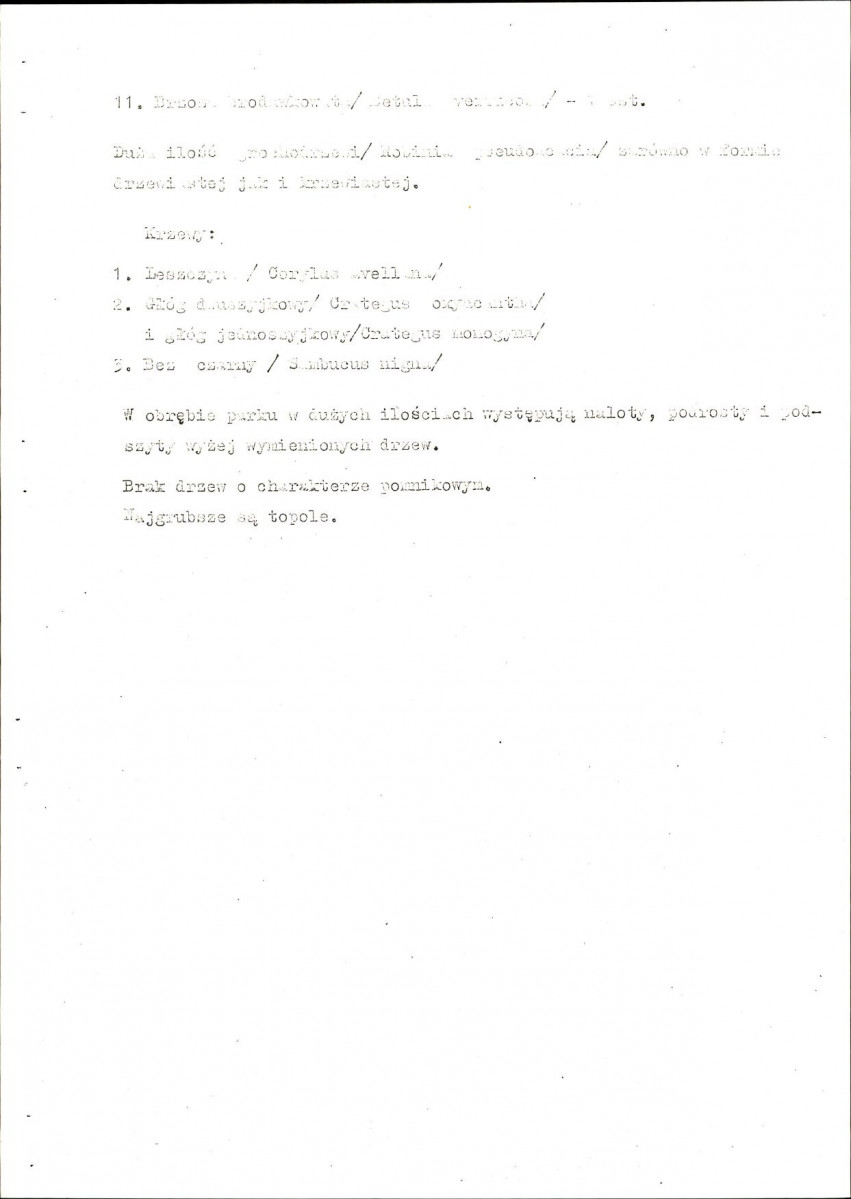 11. Brzoza brodawkowata/ Betula verrucosa/ - szt.
Duża ilość grochodrzewi/ Robinia pseudoacacia/ zarówno w formie
drzewiastej jak i krzewiastej.
Krzewy:
1. Leszczyna / Corylus avellana/
2. Głóg dwuszyjkowy/ Crategus oxyacantha/
i głóg jednoszyjkowy/Crategus monogyna/
3. Bez czarny / Sambucus nigra/
W obrębie parku w dużych ilościach występują naloty, podrosty i pod-
szyty wyżej wymienionych drzew.
Brak drzew o charakterze pomnikowym.
Najgrubsze są topole.